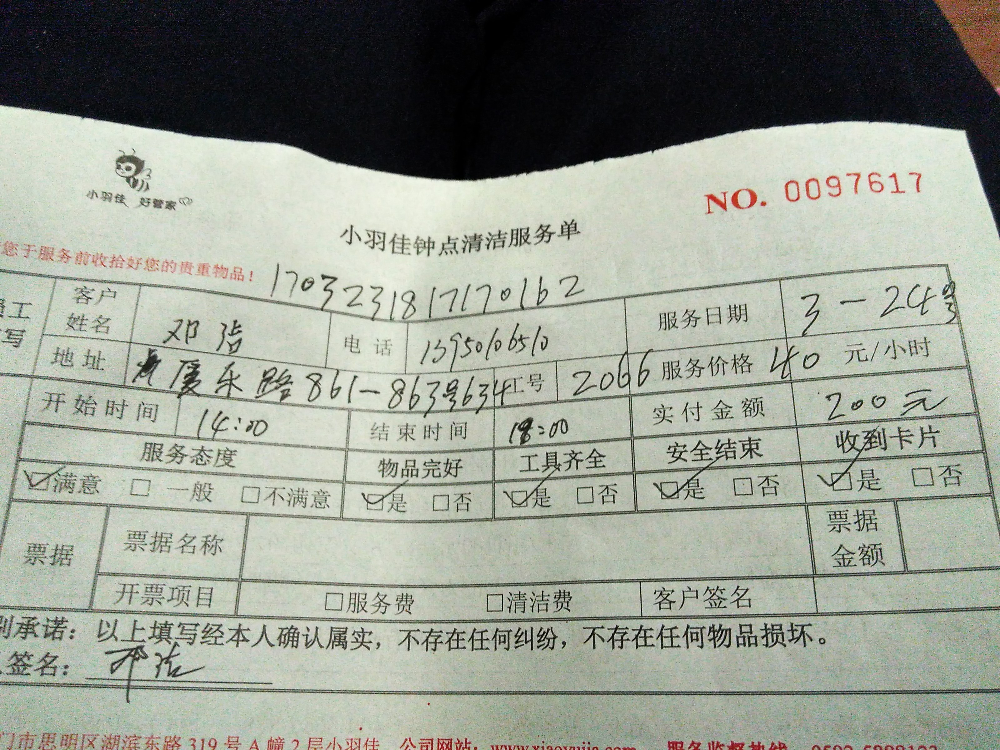 小羽佳 好管家
NO. 0097617
小羽佳钟点清洁服务单
您于服务前收拾好您的贵重物品！
1703231817170162
员工 客户姓名 邓洁 电话 13950106510 服务日期 3-24号
写 地址 厦禾路861-863号634 工号 2066 服务价格 40 元/小时
开始时间 14:00 结束时间 18:00 实付金额 200元
服务态度 物品完好 工具齐全 安全结束 收到卡片
☑满意 □一般 □不满意 ☑是 □否 ☑是 □否 ☑是 □否 ☑是 □否
票据 票据名称 票据金额
开票项目 □服务费 □清洁费 客户签名
别承诺：以上填写经本人确认属实，不存在任何纠纷，不存在任何物品损坏。
签名：邓洁
门市思明区湖滨东路319号A幢2层小羽佳 公司网站：www.xiaoyujia.com 服务监督热线：